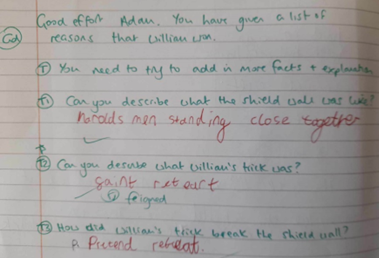 Good effort Adam. You have given a list of
reasons that William won.
T You need to try to add in more facts + explanation
Can you describe what the shield wall was like?
harolds men standing close together
Can you describe what William's trick was?
saint reteart
feigned
How did William's trick break the shield wall?
A Pretend retreat.